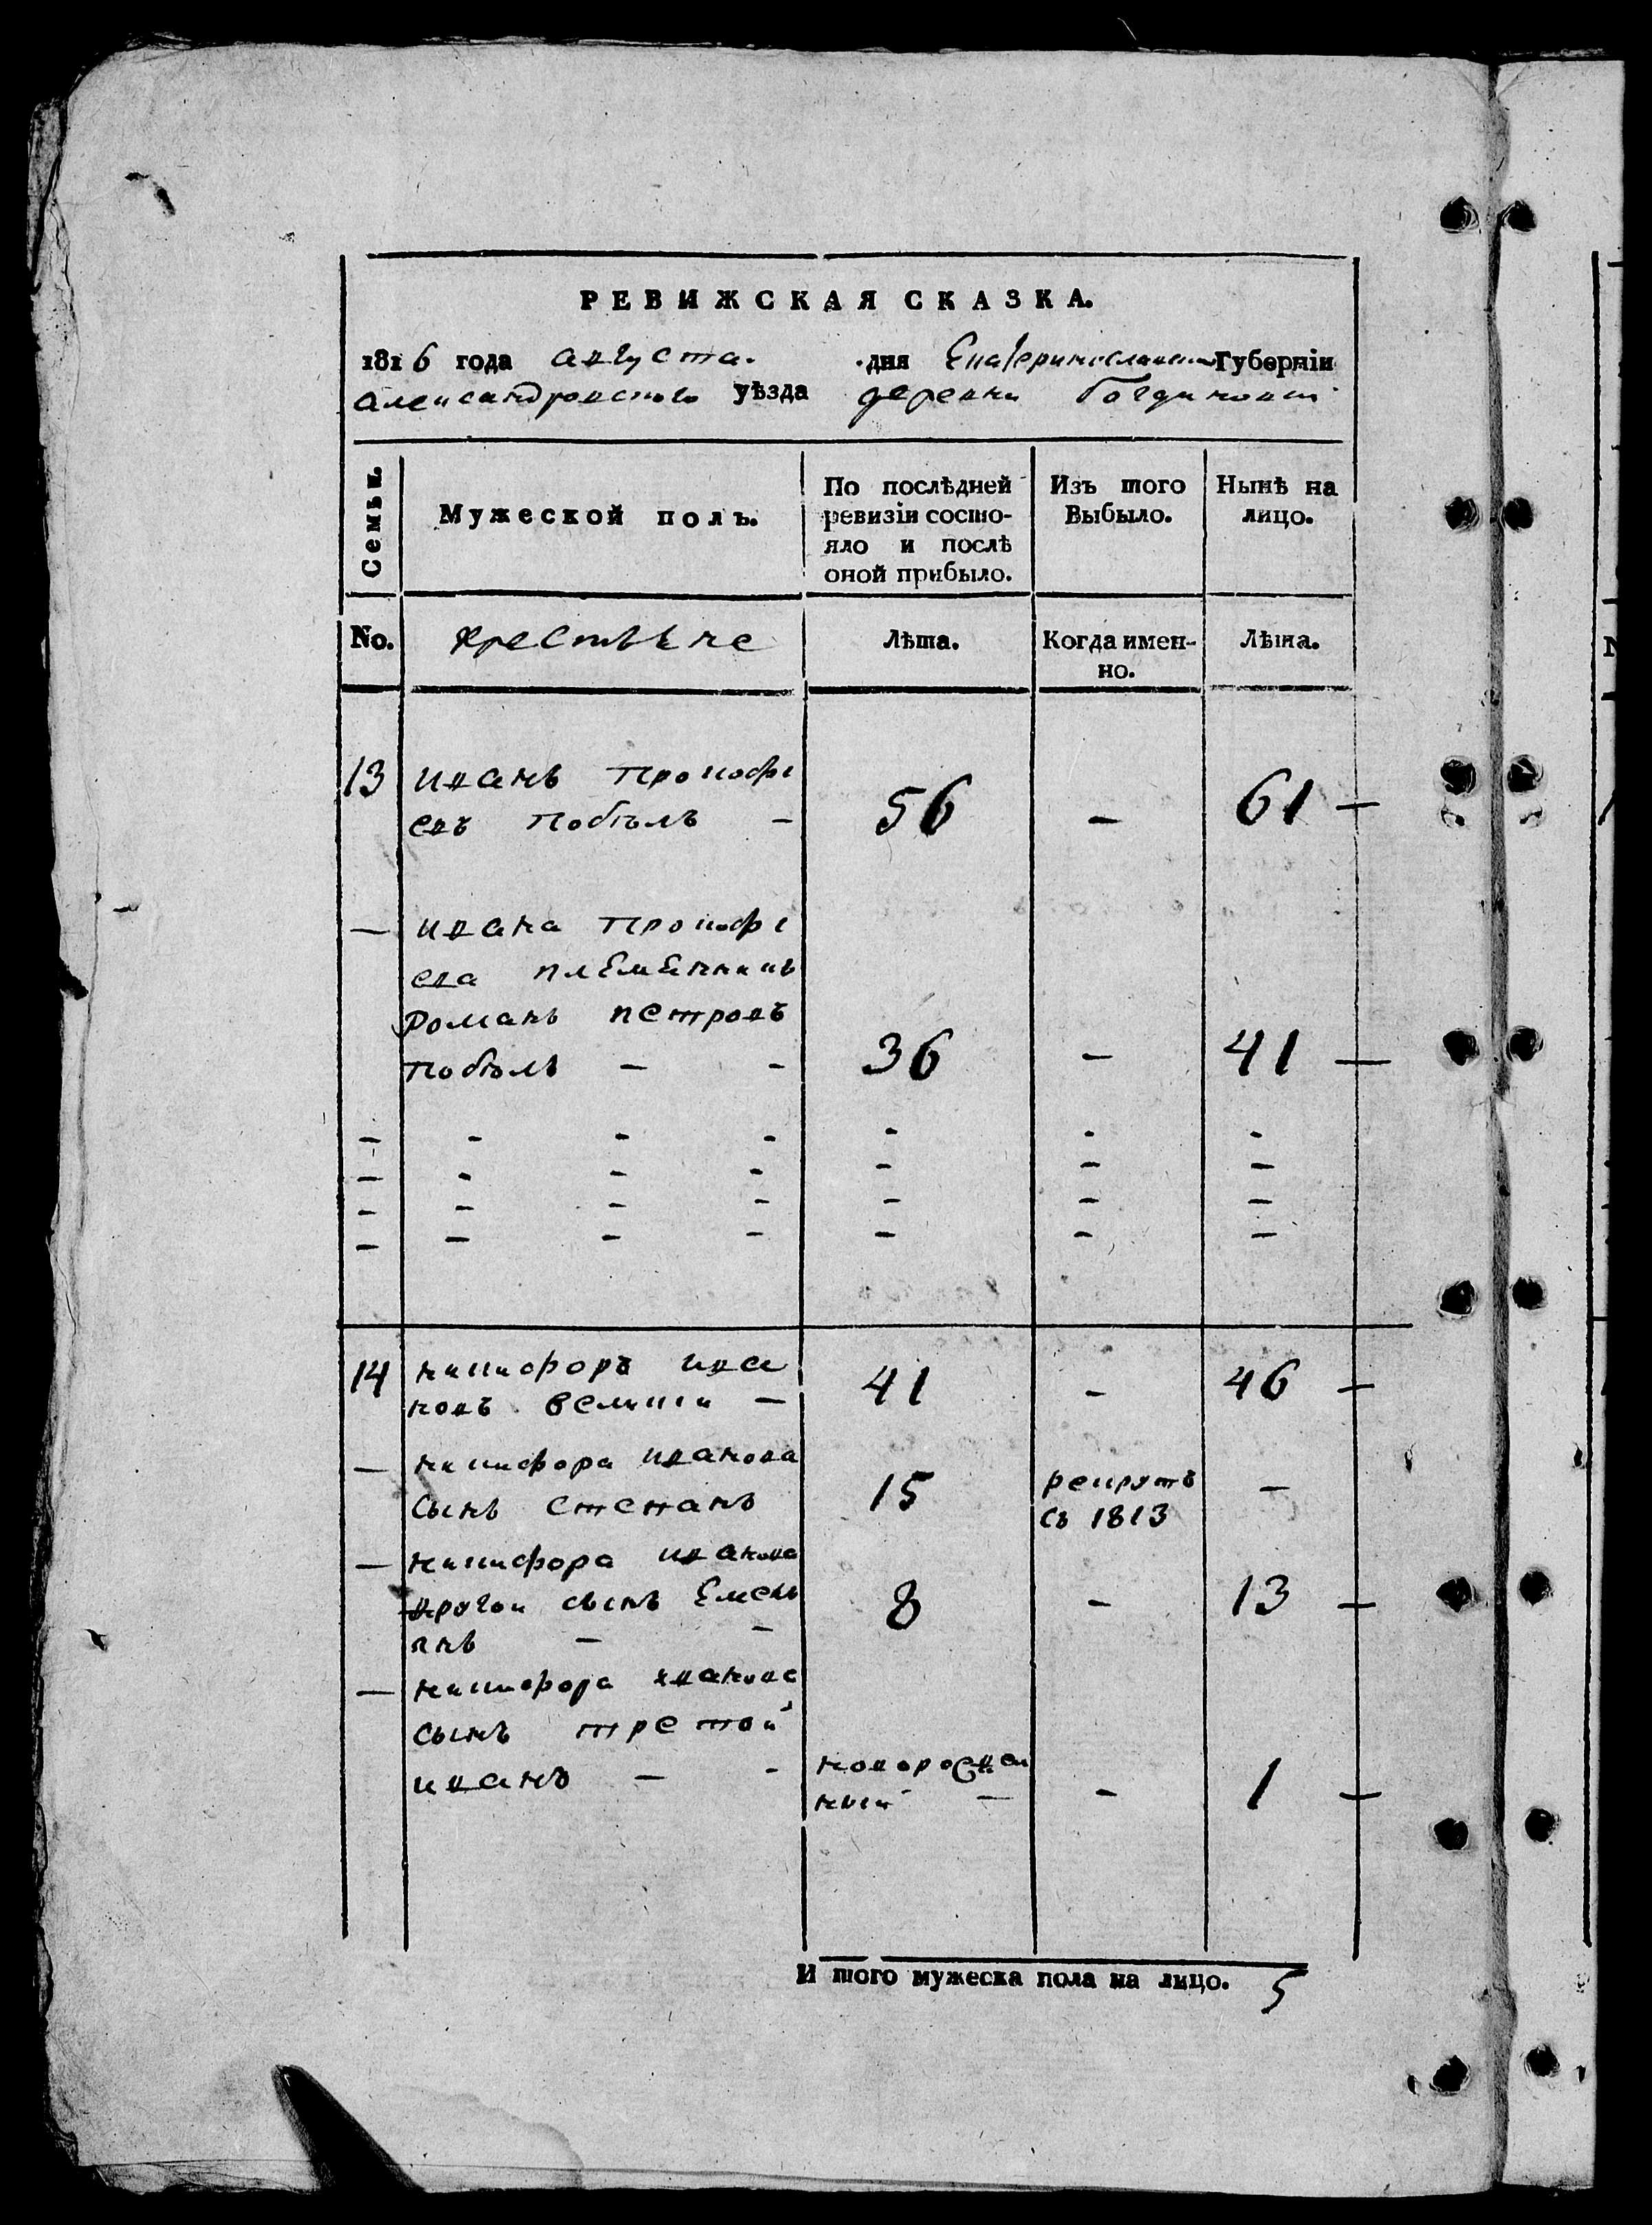 РЕВИЖСКАЯ СКАЗКА.
1816 года августа дня Екатеринославской Губерніи
Александровского уѣзда деревни
Семьи.
Мужеской полъ.
По послѣдней ревизіи состояло и послѣ оной прибыло.
Изъ того Выбыло.
Нынѣ на лицо.
No. крестьяне Лѣта. Когда именно. Лѣта.
13 иванъ прокофі
евъ побелъ - 56 - 61
- ивана прокофі
ева племенникъ
романъ петровъ
побелъ - - 36 - 41
14 никифоръ ива
новъ великіи - 41 - 46
- никифора иванова
сынъ степанъ 15 рекрутъ съ 1813 -
- никифора иванова
другои сынъ Емель
янъ - - 8 - 13
- никифора иванова
сынъ третой
иванъ - - новорожден
ный - - 1
И того мужеска пола на лицо. 5